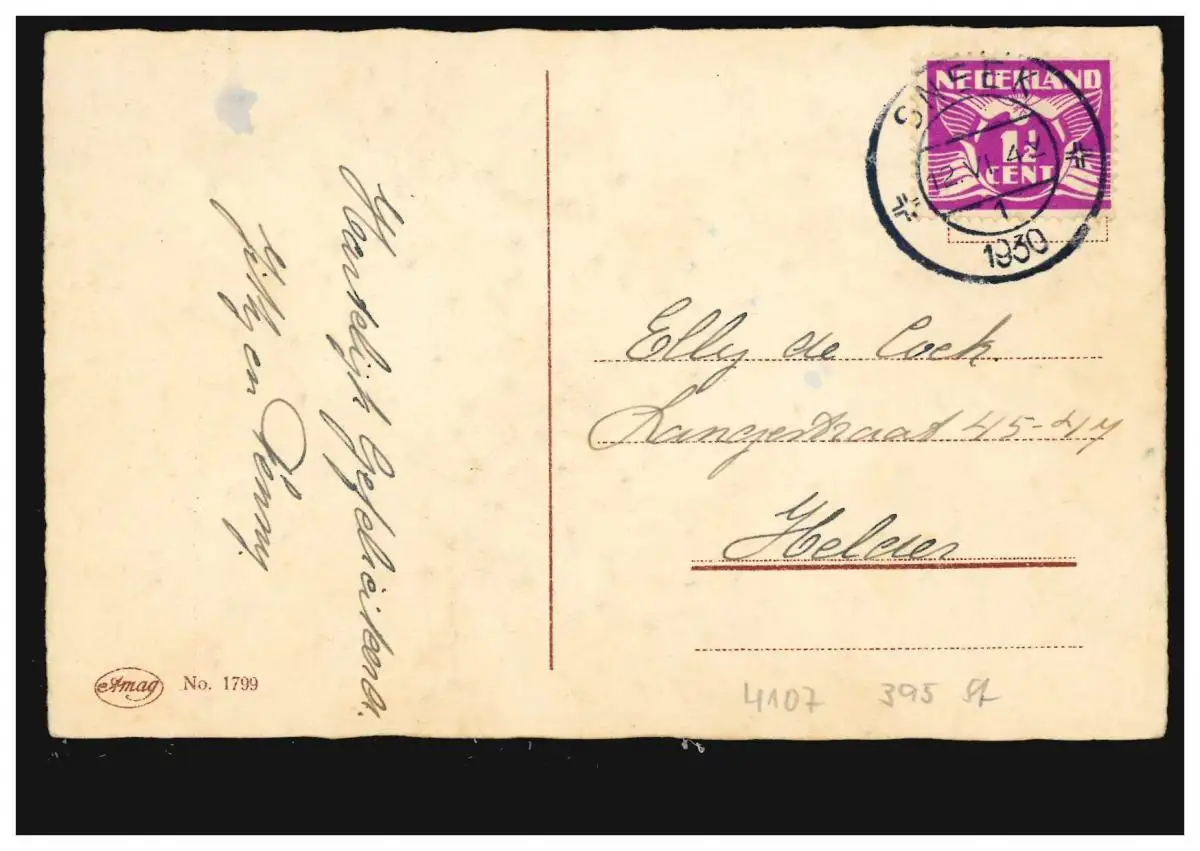 Hartelijk Gefeliciteerd.
en Jenny.
Amag No. 1799
NEDERLAND
1½
CENT
SNEEK
12.VI.42
1
1930
Elly de Cock.
Langestraat 45-47
Helder
4107 395